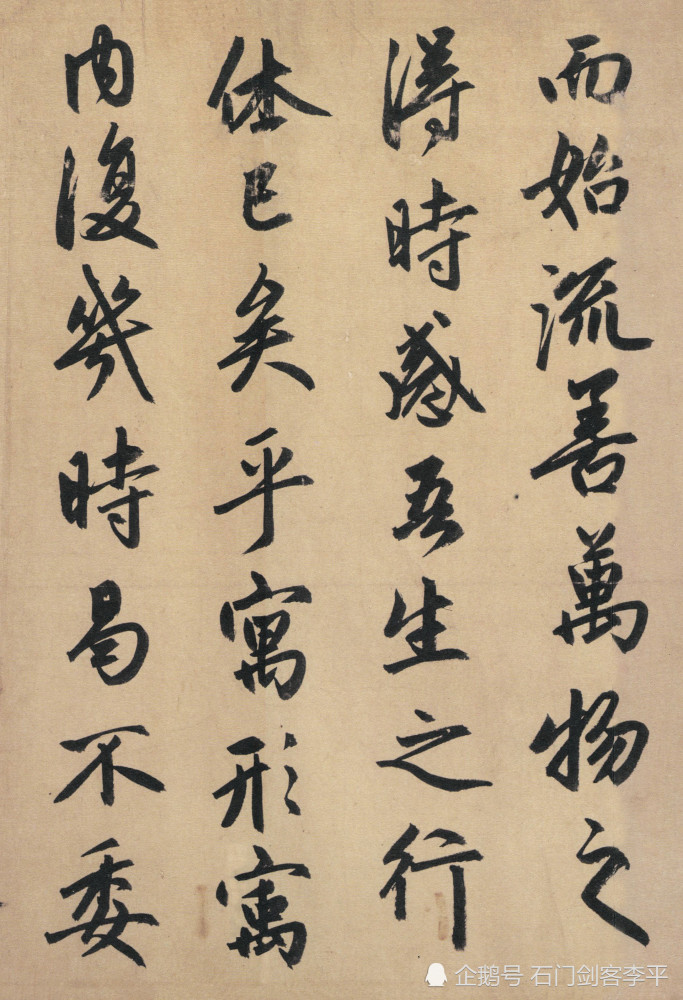 而始流善萬物之
得時感吾生之行
休已矣乎寓形寓
内復幾時曷不委
企鹅号 石门剑客李平